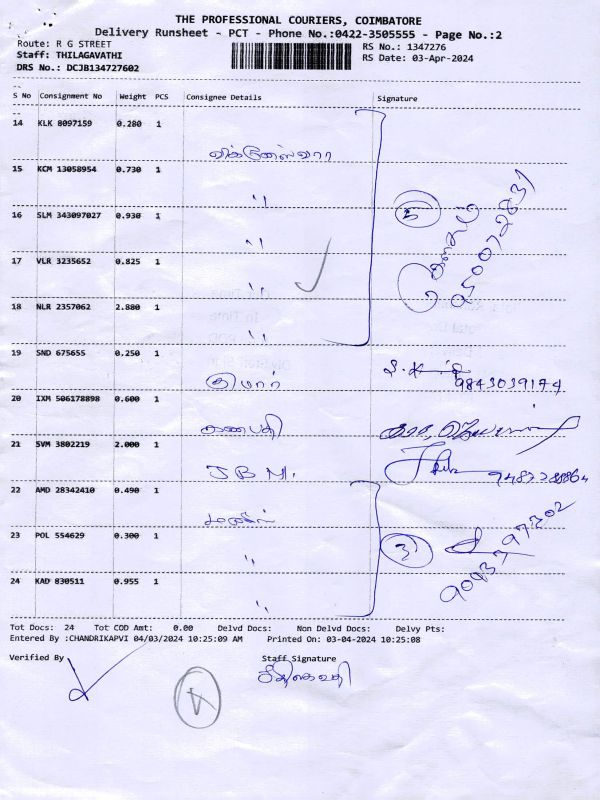 THE PROFESSIONAL COURIERS, COIMBATORE
Delivery Runsheet - PCT - Phone No.:0422-3505555 - Page No.:2
Route: R G STREET
RS No.: 1347276
Staff: THILAGAVATHI
RS Date: 03-Apr-2024
DRS No.: DCJB134727602
S No Consignment No Weight PCS Consignee Details Signature
14 KLK 8097159 0.280 1
15 KCM 13058954 0.730 1 ''
16 SLM 343097027 0.930 1 '' 5
17 VLR 3235652 0.825 1 ''
18 NLR 2357062 2.880 1 ''
19 SND 675655 0.250 1 குமார் 9843039174
20 IXM 506178898 0.600 1 கணபதி
21 SVM 3802219 2.000 1 J B M.
22 AMD 28342410 0.490 1
23 POL 554629 0.300 1 '' 3 90437 97302
24 KAD 830511 0.955 1 ''
Tot Docs: 24 Tot COD Amt: 0.00 Delvd Docs: Non Delvd Docs: Delvy Pts:
Entered By :CHANDRIKAPVI 04/03/2024 10:25:09 AM Printed On: 03-04-2024 10:25:08
Verified By Staff Signature